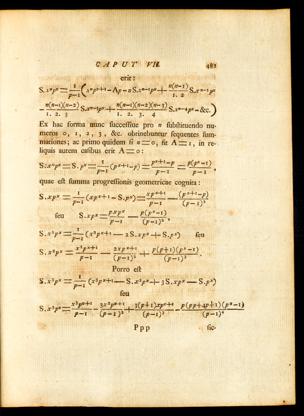 CAPUT VII. 481
erit:
S.xⁿpˣ = 1/(p−1) (xⁿpˣ⁺¹ − Ap − n S.xⁿ⁻¹pˣ + n(n−1)/1. 2 S.xⁿ⁻²pˣ
− n(n−1)(n−2)/1. 2. 3 S.xⁿ⁻³pˣ + n(n−1)(n−2)(n−3)/1. 2. 3. 4 S.xⁿ⁻⁴pˣ − &c.)
Ex hac forma nunc successive pro n substituendo nu-
meros 0, 1, 2, 3, &c. obtinebuntur sequentes sum-
mationes; ac primo quidem si n = 0, fit A = 1, in re-
liquis autem casibus erit A = 0:
S.x⁰pˣ = S. pˣ = 1/(p−1) (pˣ⁺¹ − p) = (pˣ⁺¹ − p)/(p−1) = p(pˣ−1)/(p−1),
quae est summa progressionis geometricae cognita:
S. xpˣ = 1/(p−1) (xpˣ⁺¹ − S.pˣ) = xpˣ⁺¹/(p−1) − (pˣ⁺¹−p)/(p−1)²
seu S. xpˣ = pxpˣ/(p−1) − p(pˣ−1)/(p−1)²,
S.x²pˣ = 1/(p−1) (x²pˣ⁺¹ − 2 S.xpˣ + S.pˣ) seu
S.x²pˣ = x²pˣ⁺¹/(p−1) − 2xpˣ⁺¹/(p−1)² + p(p+1)(pˣ−1)/(p−1)³.
Porro est
S.x³pˣ = 1/(p−1) (x³pˣ⁺¹ − 3 S.x²pˣ + 3 S.xpˣ − S.pˣ)
seu
S.x³pˣ = x³pˣ⁺¹/(p−1) − 3x²pˣ⁺¹/(p−1)² + 3(p+1)xpˣ⁺¹/(p−1)³ − p(pp+4p+1)(pˣ−1)/(p−1)⁴
Ppp sic-